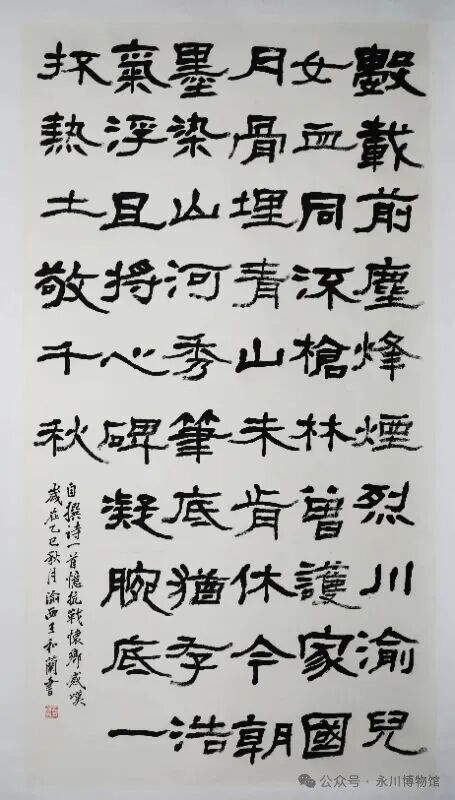 數載前塵烽煙烈川渝兒
女血同流槍林曾護家國
月骨埋青山未肯休今朝
墨染山河秀筆底猶存浩
氣浮且將心碑凝腕底一
抔熱土敬千秋
自撰詩一首憶抗戰懷鄉感嘆
歲在乙巳秋月渝西王和蘭書
公众号·永川博物馆